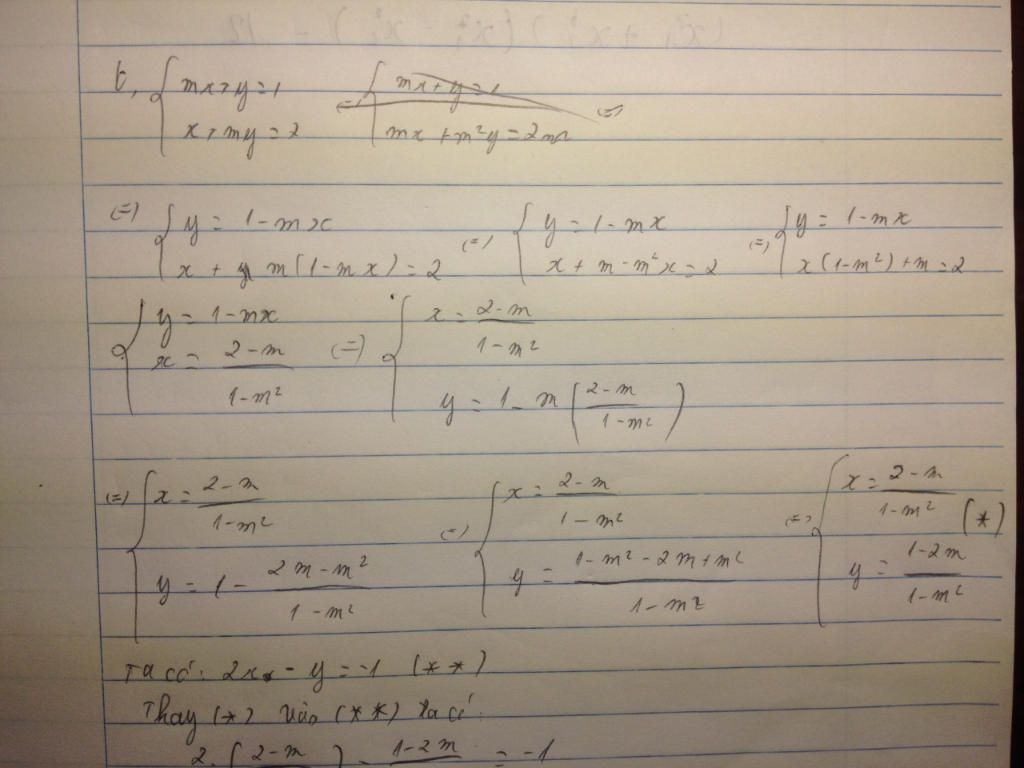 b, { mx+y=1 (=) { mx+y=1 (=)
x+my=2 mx+m²y=2m
(=) { y = 1-mx (=) { y = 1-mx (=) { y = 1-mx
x + m(1-mx) = 2 x + m - m²x = 2 x(1-m²)+m = 2
{ y = 1-mx (=) { x = (2-m)/(1-m²)
x = (2-m)/(1-m²) y = 1 - m((2-m)/(1-m²))
(=) { x = (2-m)/(1-m²) (=) { x = (2-m)/(1-m²) (=) { x = (2-m)/(1-m²) (*)
y = 1 - (2m-m²)/(1-m²) y = (1-m²-2m+m²)/(1-m²) y = (1-2m)/(1-m²)
Ta có: 2x - y = -1 (**)
Thay (*) vào (**) ta có:
2.((2-m)/ ) - (1-2m)/ = -1